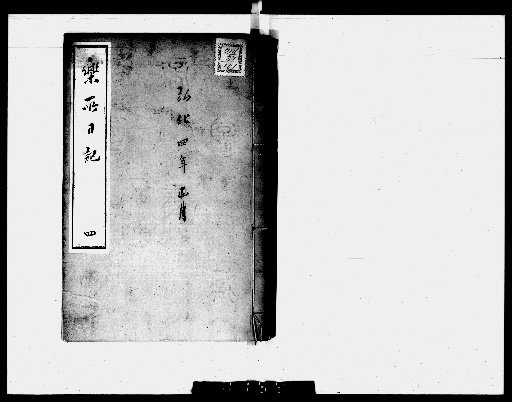 弘化四年正月
樂西日記 四